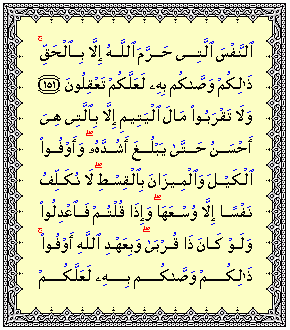 ٱلنَّفْسَ ٱلَّتِى حَرَّمَ ٱللَّهُ إِلَّا بِٱلْحَقِّ ۚ
ذَٰلِكُمْ وَصَّىٰكُم بِهِۦ لَعَلَّكُمْ تَعْقِلُونَ ﴿١٥١﴾
وَلَا تَقْرَبُوا۟ مَالَ ٱلْيَتِيمِ إِلَّا بِٱلَّتِى هِىَ
أَحْسَنُ حَتَّىٰ يَبْلُغَ أَشُدَّهُۥ ۖ وَأَوْفُوا۟
ٱلْكَيْلَ وَٱلْمِيزَانَ بِٱلْقِسْطِ ۖ لَا نُكَلِّفُ
نَفْسًا إِلَّا وُسْعَهَا ۖ وَإِذَا قُلْتُمْ فَٱعْدِلُوا۟
وَلَوْ كَانَ ذَا قُرْبَىٰ ۖ وَبِعَهْدِ ٱللَّهِ أَوْفُوا۟ ۚ
ذَٰلِكُمْ وَصَّىٰكُم بِهِۦ لَعَلَّكُمْ